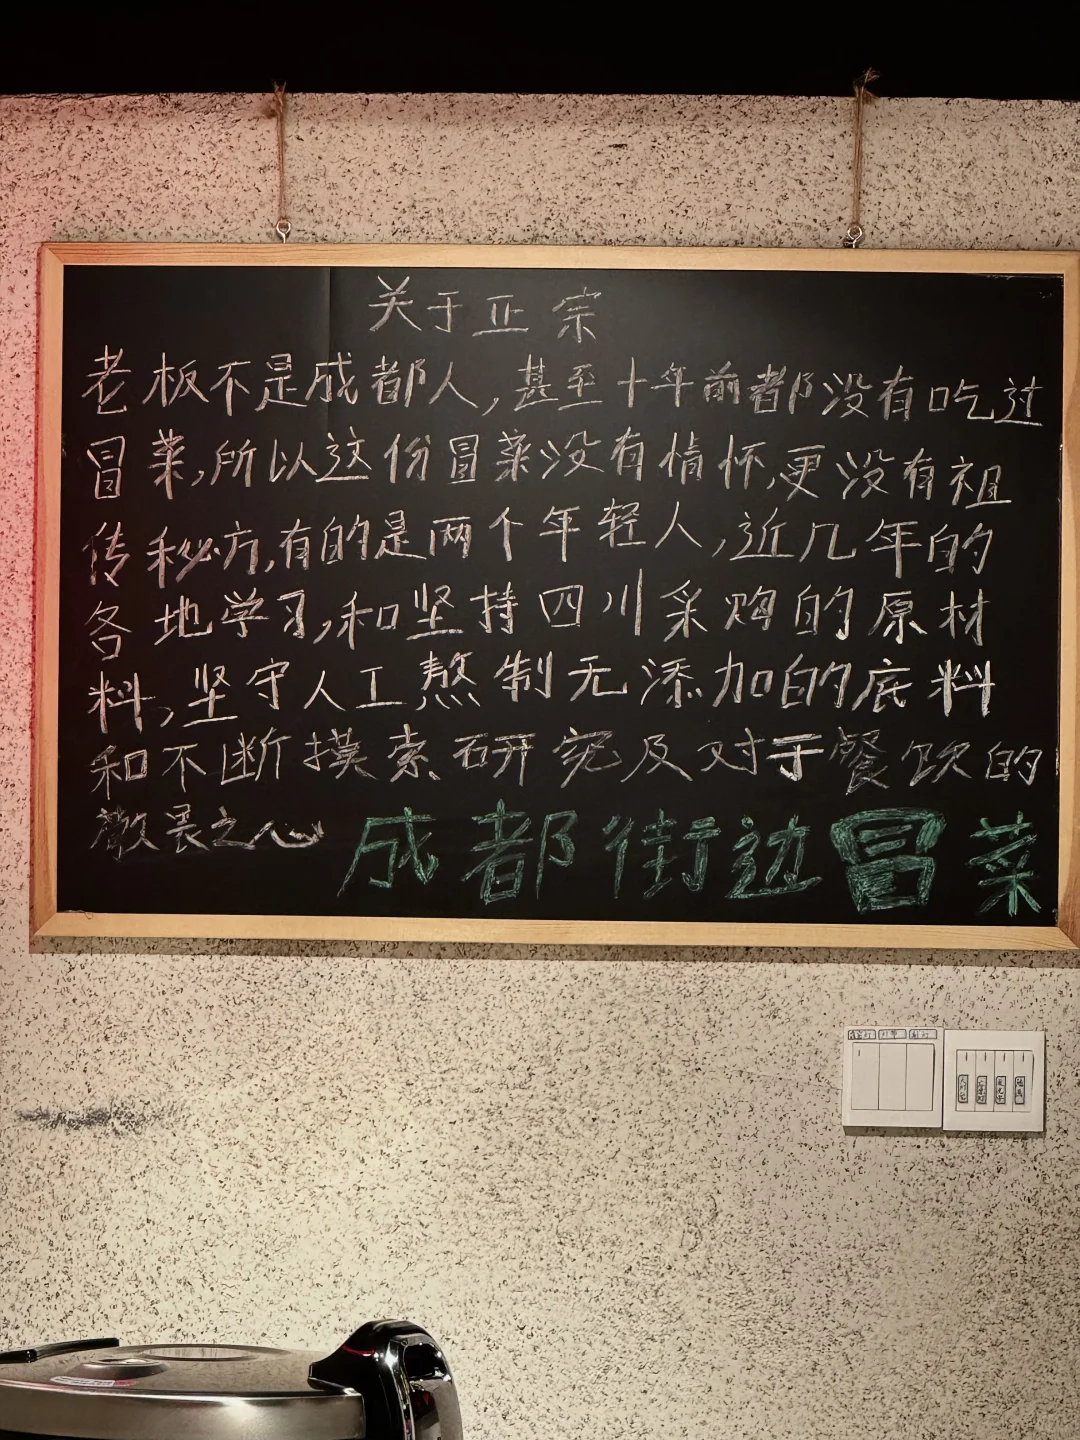 关于正宗
老板不是成都人,甚至十年前都没有吃过
冒菜,所以这份冒菜没有情怀,更没有祖
传秘方,有的是两个年轻人,近几年的
各地学习,和坚持四川采购的原材
料,坚守人工熬制无添加的底料
和不断摸索研究及对于餐饮的
敬畏之心
成都街边冒菜